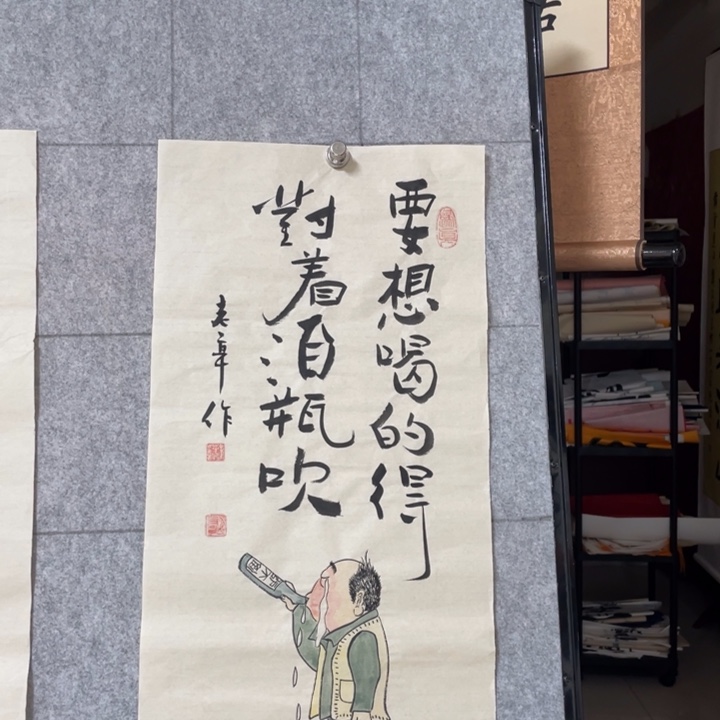 要想喝的得
對着酒瓶吹
春章作